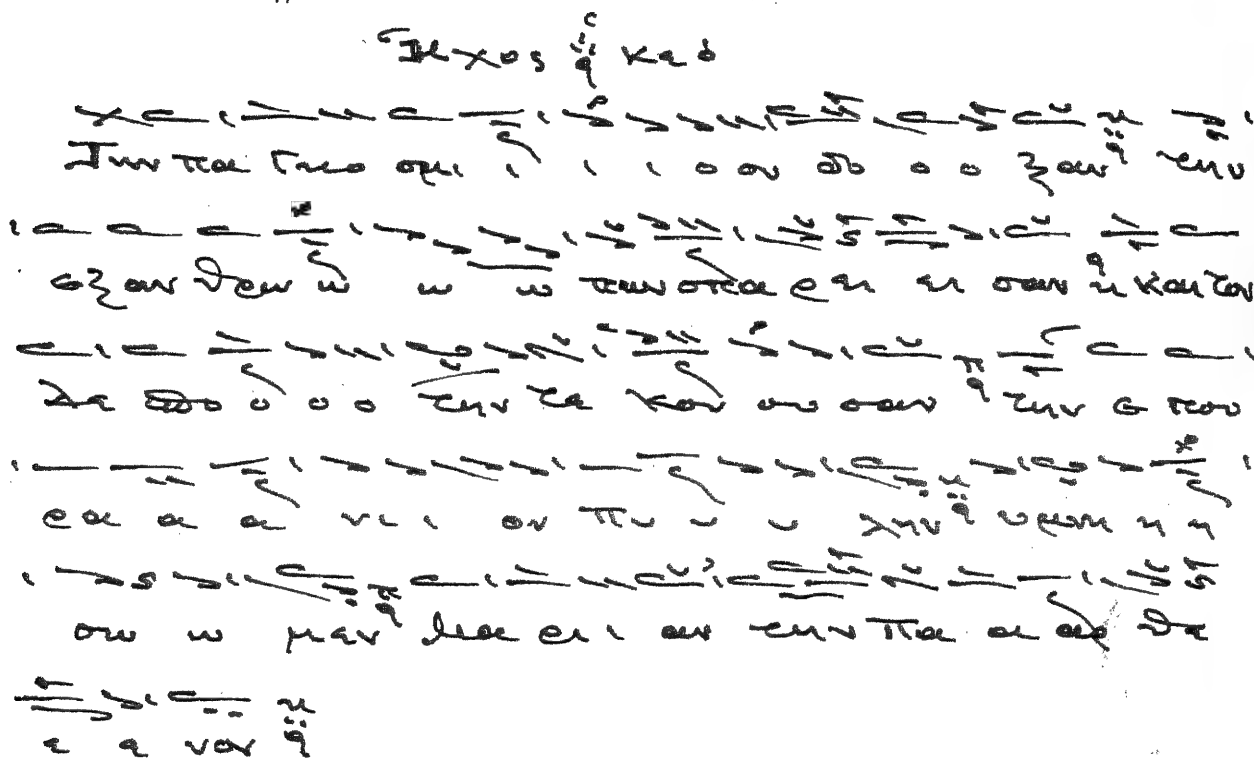 Ηχος
Την πα γκο σμι ι ι ι ο ον δο ο ο ξαν την
εξ αν θρω ω ω πων σπα ρει ει σαν και τον
Δε σπο ο ο ο την τε κου ου σαν την ε που
ρα α α νι ι ον πυ υ υ λην υμνη η η
σω ω μεν Μα ρι ι αν την Πα α αρ θε
ε ε νον